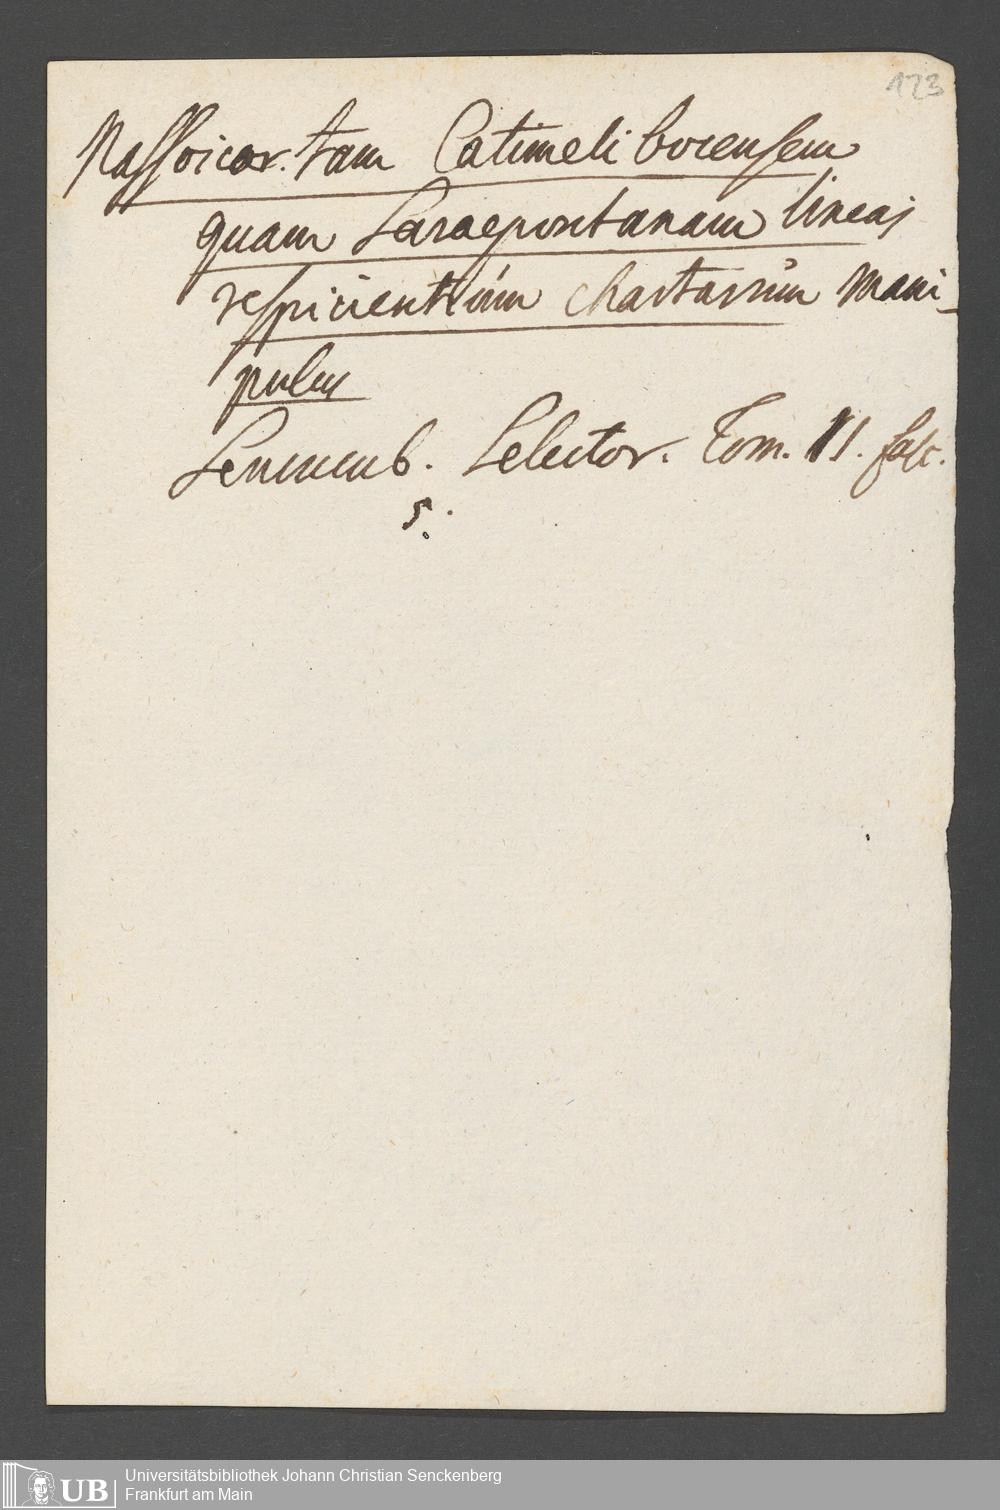 123
Nassoicor. tam Catimelibocensem
quam Saraepontanam lineas
respicientium chartarum mani-
pulus
Senckenb. Selector. Tom. II. fasc.
5.
UB Universitätsbibliothek Johann Christian Senckenberg
Frankfurt am Main